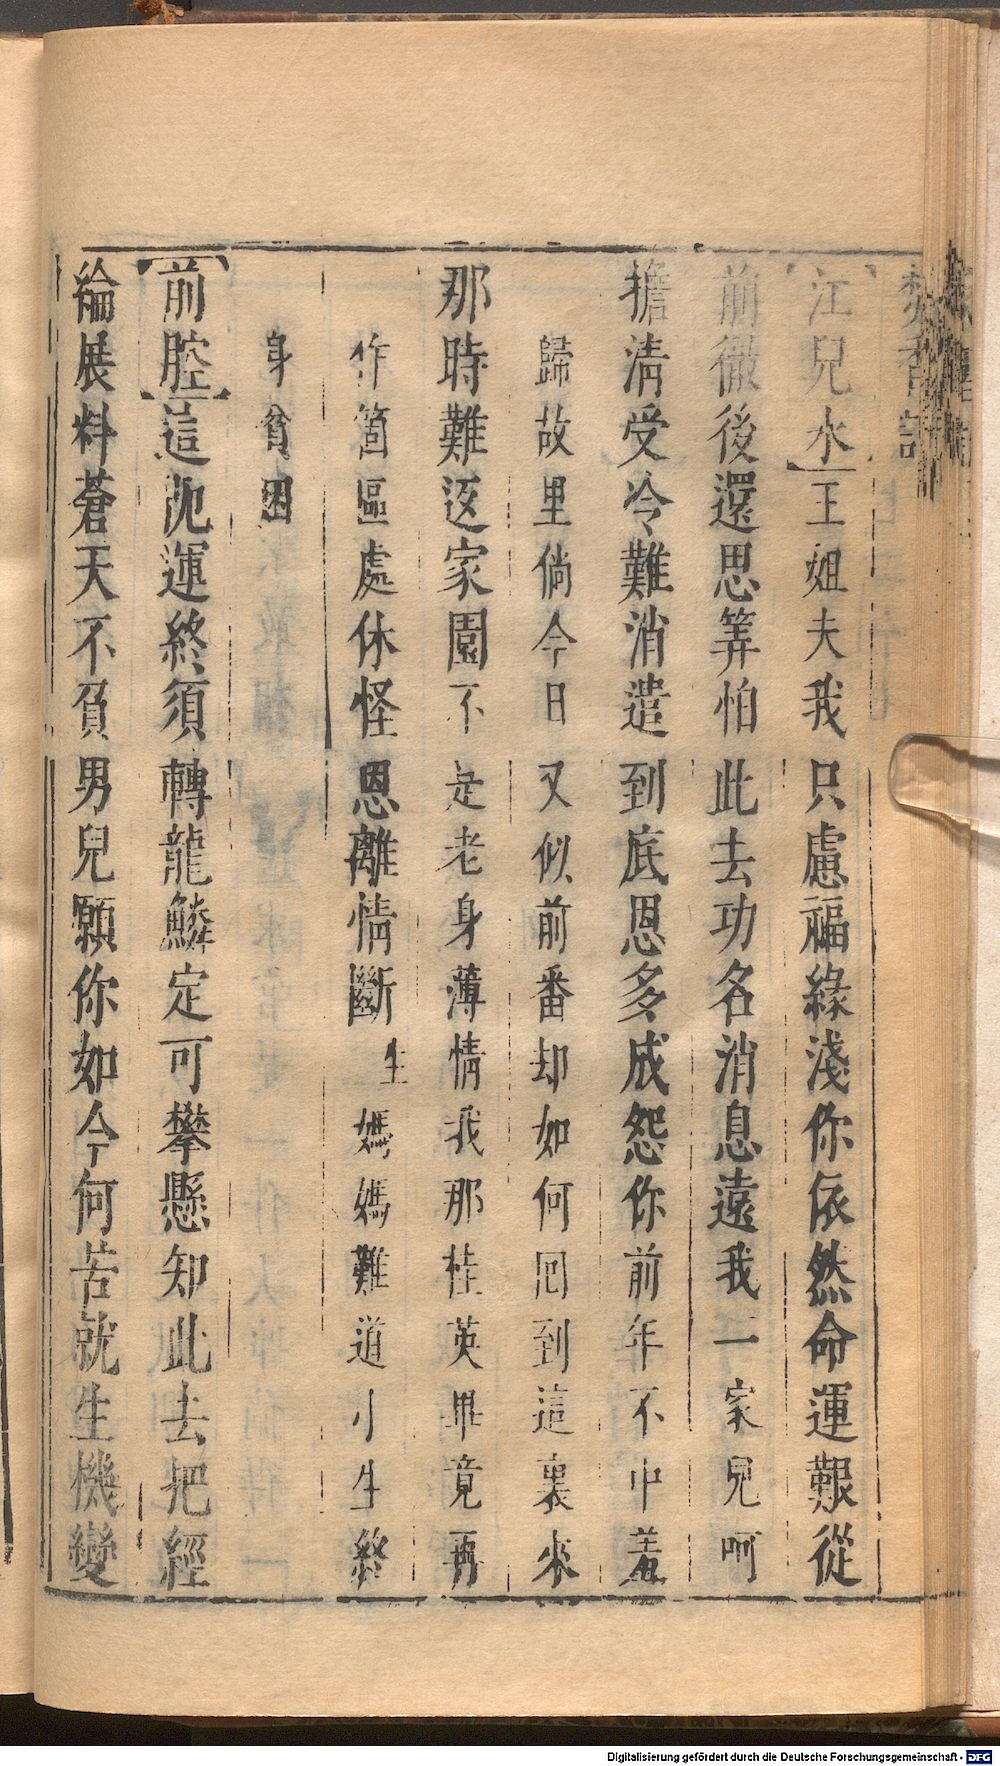 焚香記
【江兒水】王姐夫我只慮福緣淺你依然命運艱從
前徹後還思筭怕此去功名消息遠我一家兒呵
擔清受冷難消遣到底恩多成怨你前年不中羞
歸故里倘今日又似前番却如何囘到這裏來
那時難返家園不是老身薄情我那桂英畢竟再
作箇區處休怪恩離情斷生媽媽難道小生終
身貧困
【前腔】這迍運終須轉龍鱗定可攀懸知此去把經
綸展料蒼天不負男兒願你如今何苦就生機變
Digitalisierung gefördert durch die Deutsche Forschungsgemeinschaft - DFG